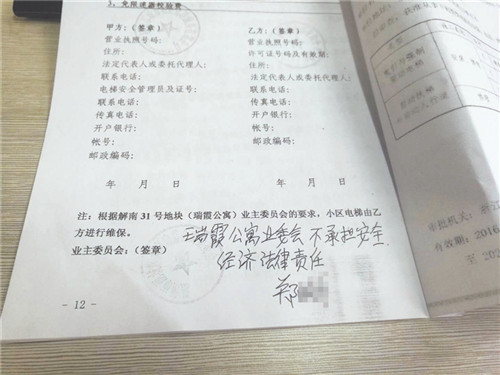 3、免限速器校验费
甲方：（签章）
乙方：（签章）
营业执照号码：
营业执照号码：
住所：
许可证号码及有效期：
法定代表人或委托代理人：
住所：
联系电话：
法定代表人或委托代理人：
电梯安全管理员及证号：
联系电话：
联系电话：
联系电话：
传真电话：
传真电话：
开户银行：
开户银行：
帐号：
帐号：
邮政编码：
邮政编码：
年 月 日
年 月 日
注：根据解南 31 号地块（瑞霞公寓）业主委员会的要求，小区电梯由乙
方进行维保。
业主委员会：（签章）
瑞霞公寓业委会不承担安全
经济法律责任
郑
- 12 -
审批机关：浙江
有效期：2016
至 20